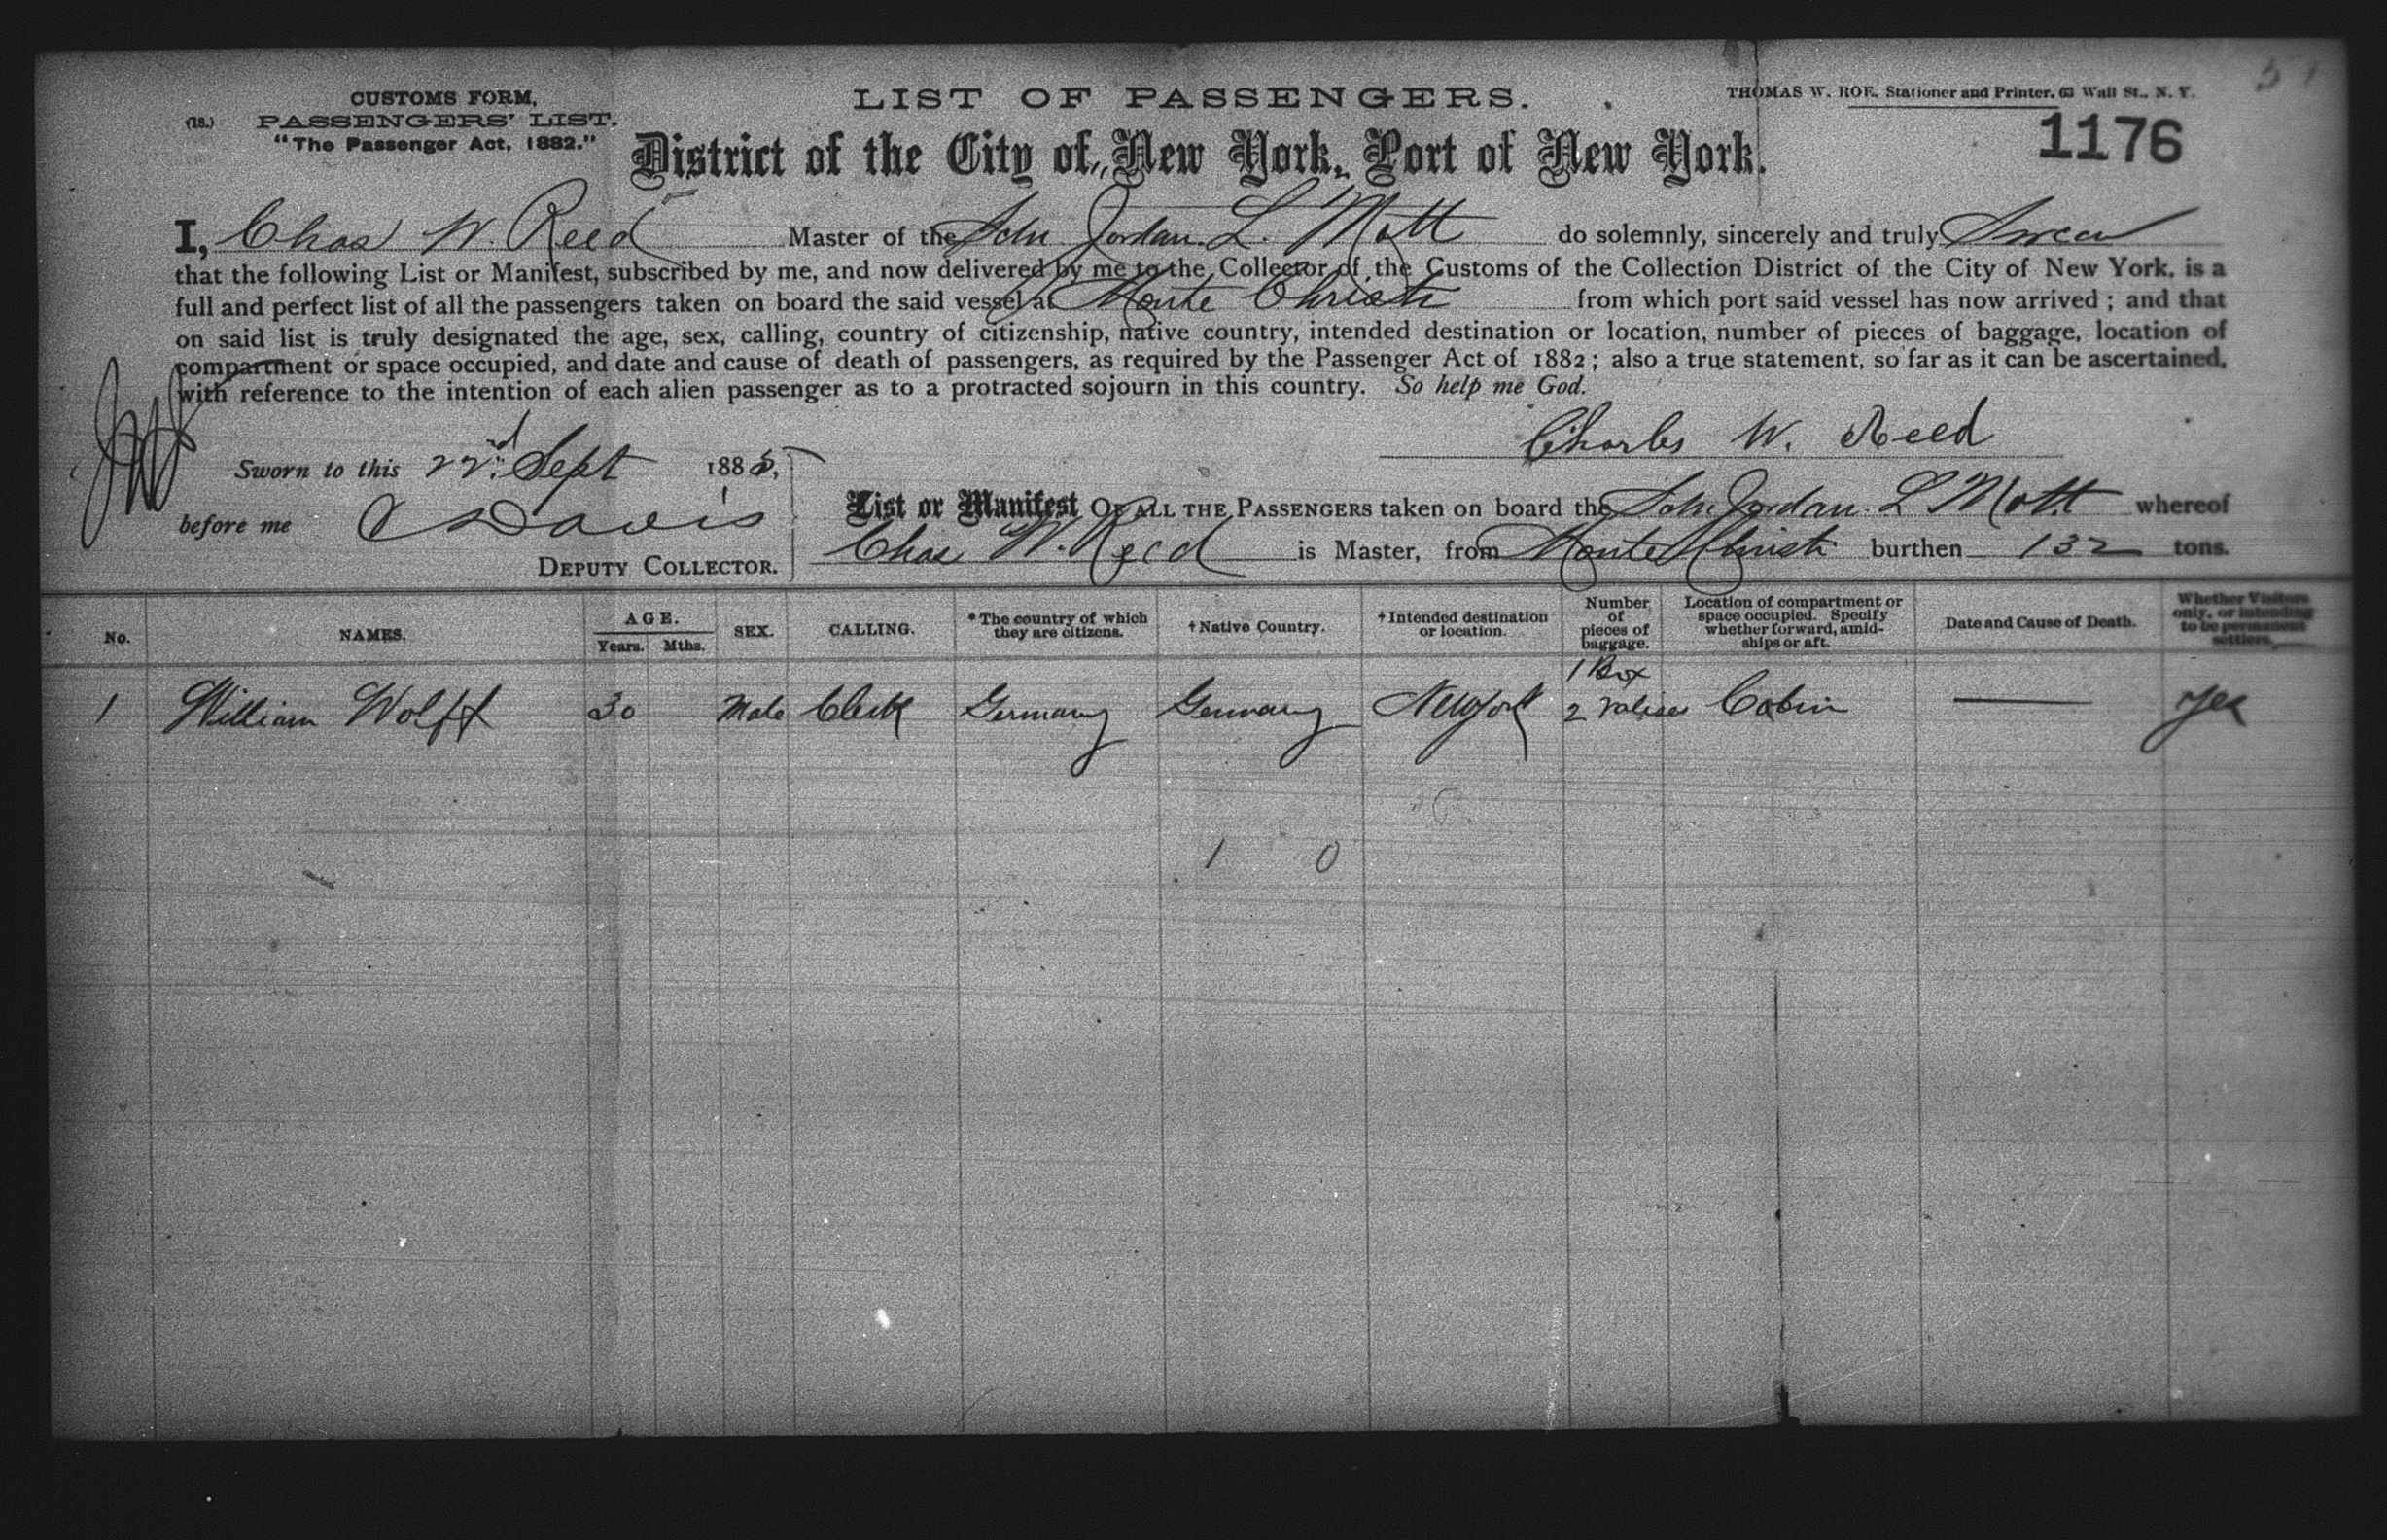 CUSTOMS FORM,
(18.) PASSENGERS' LIST.
"The Passenger Act, 1882."
LIST OF PASSENGERS.
THOMAS W. ROE, Stationer and Printer, 63 Wall St., N. Y.
51
1176
District of the City of New York, Port of New York.
I, Chas W. Reed Master of the Schr Jordan L. Mott do solemnly, sincerely and truly Swear
that the following List or Manifest, subscribed by me, and now delivered by me to the Collector of the Customs of the Collection District of the City of New York, is a
full and perfect list of all the passengers taken on board the said vessel at Monte Christi from which port said vessel has now arrived; and that
on said list is truly designated the age, sex, calling, country of citizenship, native country, intended destination or location, number of pieces of baggage, location of
compartment or space occupied, and date and cause of death of passengers, as required by the Passenger Act of 1882; also a true statement, so far as it can be ascertained,
with reference to the intention of each alien passenger as to a protracted sojourn in this country. So help me God.
Charles W. Reed
Sworn to this 22nd Sept 1885,
before me Davis
DEPUTY COLLECTOR.
List or Manifest OF ALL THE PASSENGERS taken on board the Schr Jordan L Mott whereof
Chas W. Reed is Master, from Monte Christi burthen 132 tons.
No. NAMES. AGE. Years. Mths. SEX. CALLING. *The country of which they are citizens. †Native Country. †Intended destination or location. Number of pieces of baggage. Location of compartment or space occupied. Specify whether forward, amidships or aft. Date and Cause of Death. Whether Visitors only, or intending to be permanent settlers.
1 William Wolff 30 Male Clerk Germany Germany New York 1 Box 2 Valises Cabin — Yes
1 0